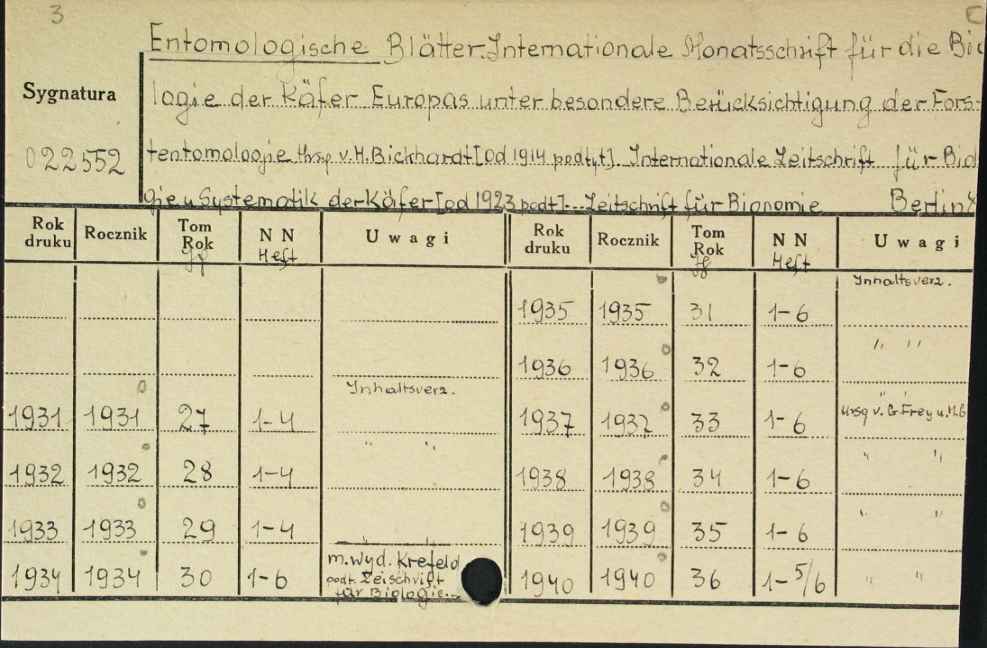 3
C
Entomologische Blätter. Internationale Monatsschrift für die Bio
Sygnatura
logie der Käfer Europas unter besondere Berücksichtigung der Fors-
022552
tentomologie Hrsg. v. H. Bickhardt [od 1914 podtyt]. Internationale Zeitschrift für Bio
gie u Systematik der Käfer [od 1923 podt]... Zeitschrift für Bionomie Berlin
Rok druku Rocznik Tom Rok Jg N N Heft Uwagi Rok druku Rocznik Tom Rok Jg N N Heft Uwagi
Inhaltsverz.
1935 1935 31 1-6
1936 1936 32 1-6 " "
Inhaltsverz.
1931 1931 27 1-4 1937 1937 33 1-6 Hrsg v. G Frey u. H.G
1932 1932 28 1-4 " " 1938 1938 34 1-6 " "
1933 1933 29 1-4 " " 1939 1939 35 1-6 " "
1934 1934 30 1-6 m. wyd. Krefeld 1940 1940 36 1-5/6 " "
podt. Zeischrift
für Biologie...